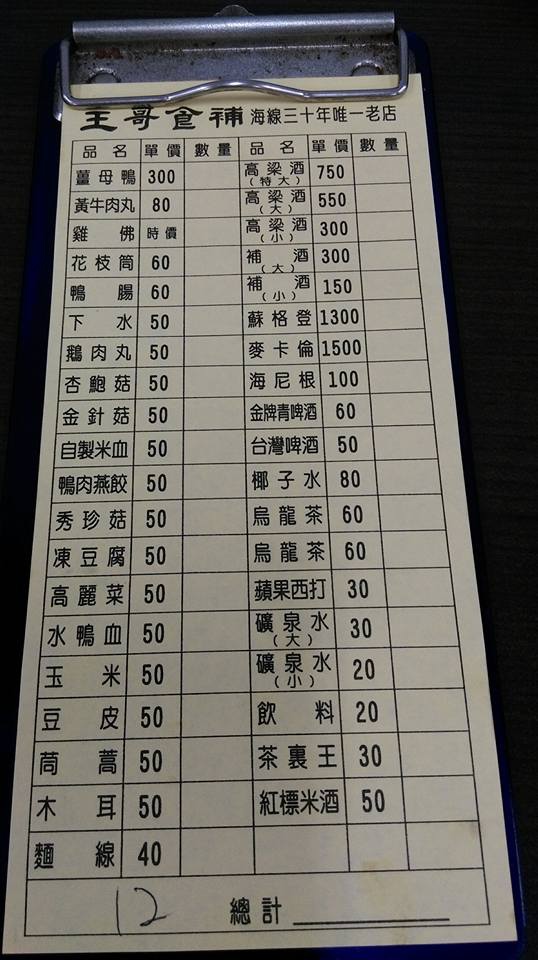 王哥食補 海線三十年唯一老店
品名 單價 數量 品名 單價 數量
薑母鴨 300 高梁酒(特大) 750
黃牛肉丸 80 高梁酒(大) 550
雞佛 時價 高梁酒(小) 300
花枝筒 60 補酒(大) 300
鴨腸 60 補酒(小) 150
下水 50 蘇格登 1300
鵝肉丸 50 麥卡倫 1500
杏鮑菇 50 海尼根 100
金針菇 50 金牌青啤酒 60
自製米血 50 台灣啤酒 50
鴨肉燕餃 50 椰子水 80
秀珍菇 50 烏龍茶 60
凍豆腐 50 烏龍茶 60
高麗菜 50 蘋果西打 30
水鴨血 50 礦泉水(大) 30
玉米 50 礦泉水(小) 20
豆皮 50 飲料 20
茼蒿 50 茶裏王 30
木耳 50 紅標米酒 50
麵線 40
12 總計